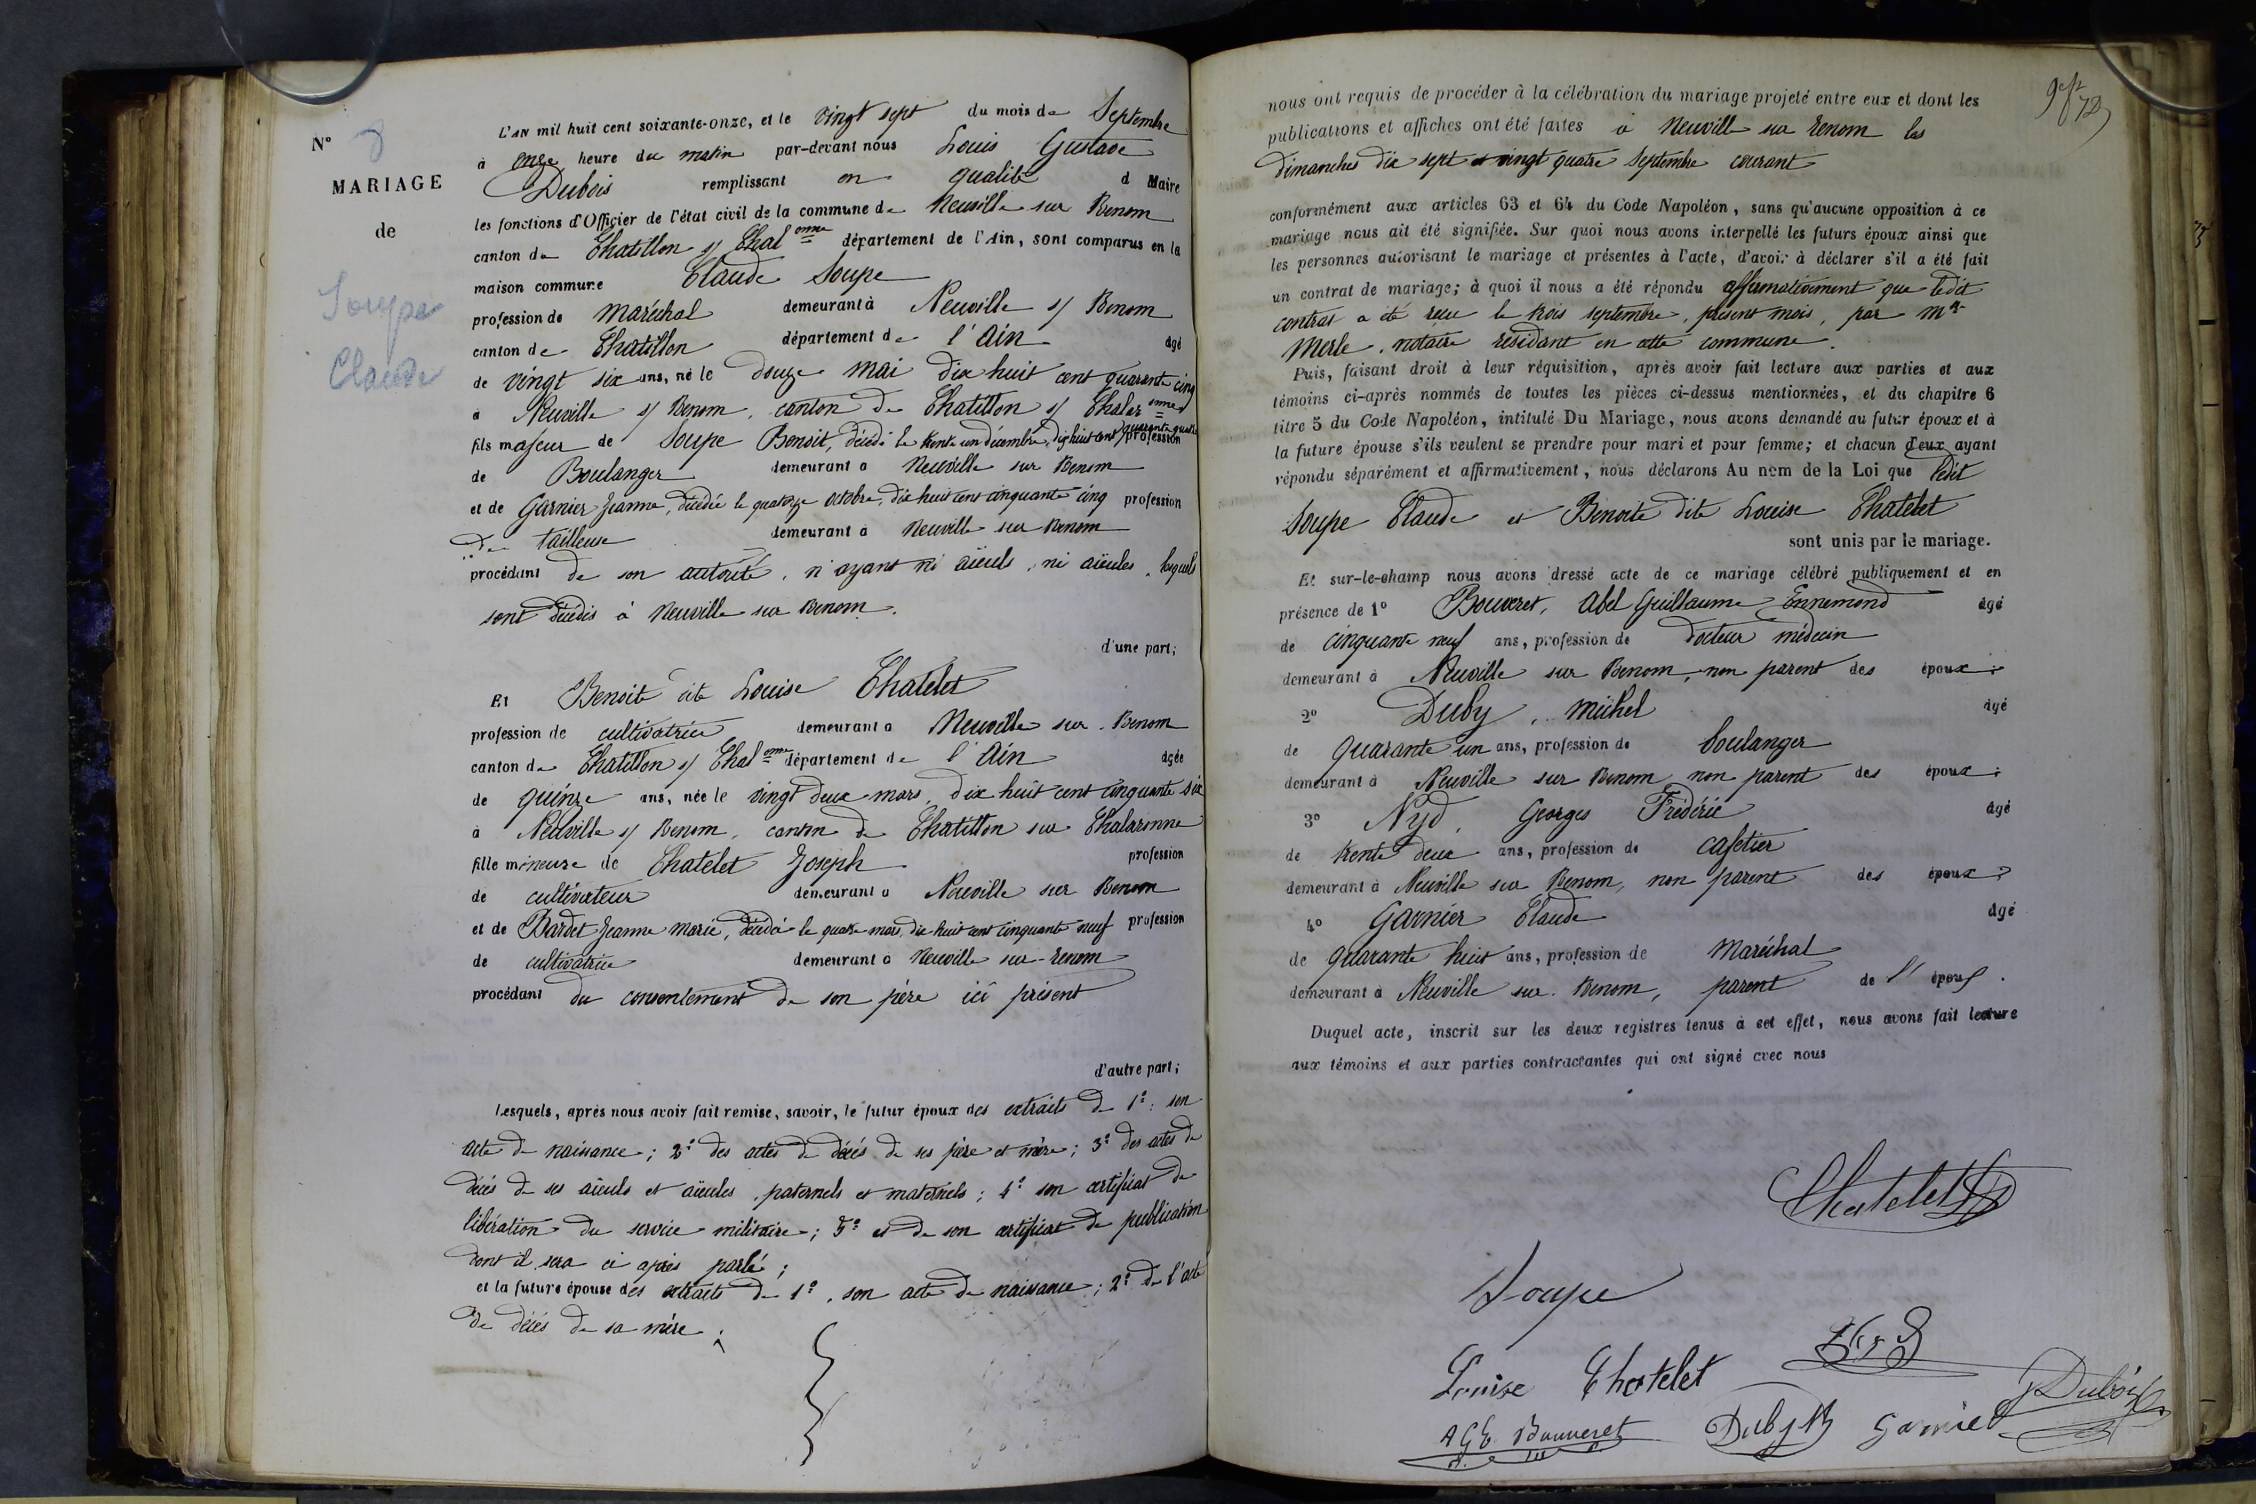 N° 8
MARIAGE
de
Soupe
Claude
L'AN mil huit cent soixante-onze, et le vingt sept du mois de Septembre
à onze heure du matin par-devant nous Louis Gustave
Dubois remplissant en qualité d Maire
les fonctions d'Officier de l'état civil de la commune de Neuville sur Renom
canton de Chatillon s/ Chalonne département de l'Ain, sont comparus en la
maison commune Claude Soupe
profession de maréchal demeurant à Neuville s/ Renom
canton de Chatillon département de l'Ain âgé
de vingt six ans, né le douze mai dix huit cent quarante cinq
à Neuville s/ Renom, canton de Chatillon s/ Chalaronne
fils majeur de Soupe Benoit, décédé le trente un décembre, dix huit cent quarante quatre profession
de Boulanger demeurant à Neuville sur Renom
et de Garnier Jeanne, décédée le quatorze octobre, dix huit cent cinquante cinq profession
de tailleuse demeurant à Neuville sur Renom
procédant de son autorité, n'ayant ni aïeuls, ni aïeules, lesquels
sont décédés à Neuville sur Renom.
d'une part;
Et Benoite dite Louise Chatelet
profession de cultivatrice demeurant à Neuville sur Renom
canton de Chatillon s/ Chalonne département de l'Ain âgée
de quinze ans, née le vingt deux mars, dix huit cent cinquante six
à Neuville s/ Renom, canton de Chatillon sur Chalaronne
fille mineure de Chatelet Joseph profession
de cultivateur demeurant à Neuville sur Renom
et de Bardet Jeanne Marie, décédé le quatre mars, dix huit cent cinquante neuf profession
de cultivatrice demeurant à Neuville sur Renom
procédant du consentement de son père ici présent
d'autre part;
Lesquels, après nous avoir fait remise, savoir, le futur époux des extraits de 1° son
acte de naissance; 2° des actes de décès de ses père et mère; 3° des actes de
décès de ses aïeuls et aïeules, paternels et maternels; 4° son certificat de
libération du service militaire; 5° et de son certificat de publication
dont il sera ci après parlé;
et la future épouse des extraits de 1°, son acte de naissance; 2° de l'acte
de décès de sa mère;
nous ont requis de procéder à la célébration du mariage projeté entre eux et dont les
publications et affiches ont été faites à Neuville sur Renom les
dimanches dix sept et vingt quatre Septembre courant
conformément aux articles 63 et 64 du Code Napoléon, sans qu'aucune opposition à ce
mariage nous ait été signifiée. Sur quoi nous avons interpellé les futurs époux ainsi que
les personnes autorisant le mariage et présentes à l'acte, d'avoir à déclarer s'il a été fait
un contrat de mariage; à quoi il nous a été répondu affirmativement que ledit
contrat a été reçu le trois septembre, présent mois, par Me
Merle, notaire résidant en cette commune.
Puis, faisant droit à leur réquisition, après avoir fait lecture aux parties et aux
témoins ci-après nommés de toutes les pièces ci-dessus mentionnées, et du chapitre 6
titre 5 du Code Napoléon, intitulé Du Mariage, nous avons demandé au futur époux et à
la future épouse s'ils veulent se prendre pour mari et pour femme; et chacun d'eux ayant
répondu séparément et affirmativement, nous déclarons Au nom de la Loi que ledit
Soupe Claude et Benoite dite Louise Chatelet
sont unis par le mariage.
Et sur-le-champ nous avons dressé acte de ce mariage célébré publiquement et en
présence de 1° Bouveret, Abel Guillaume Ennemond âgé
de cinquante neuf ans, profession de docteur médecin
demeurant à Neuville sur Renom, non parent des époux;
2° Duby, Michel âgé
de quarante un ans, profession de boulanger
demeurant à Neuville sur Renom non parent des époux;
3° Nyd, Georges Frédéric âgé
de trente deux ans, profession de cafetier
demeurant à Neuville sur Renom, non parent des époux;
4° Garnier Claude âgé
de quarante huit ans, profession de maréchal
demeurant à Neuville sur Renom, parent de l'époux.
Duquel acte, inscrit sur les deux registres tenus à cet effet, nous avons fait lecture
aux témoins et aux parties contractantes qui ont signé avec nous
Chatelet
Soupe
Louise Chatelet
A G E Bouveret Duby M Garnier Dubois